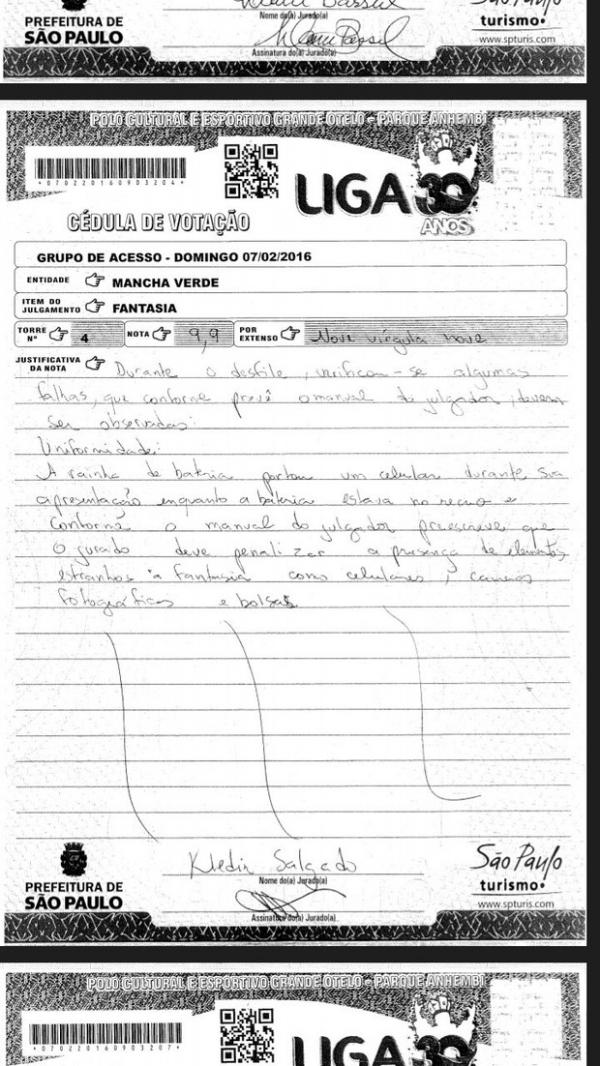 PREFEITURA DE
SÃO PAULO
Nome do(a) Jurado(a)
Assinatura do(a) Jurado(a)
São Paulo
turismo
www.spturis.com
POLO CULTURAL E ESPORTIVO GRANDE OTELO - PARQUE ANHEMBI
*070220160903204*
LIGA 30
ANOS
CÉDULA DE VOTAÇÃO
GRUPO DE ACESSO - DOMINGO 07/02/2016
ENTIDADE MANCHA VERDE
ITEM DO JULGAMENTO FANTASIA
TORRE Nº 4 NOTA 9,9 POR EXTENSO Nove vírgula nove
JUSTIFICATIVA DA NOTA
Durante o desfile, verificou-se algumas
falhas, que conforme prevê o manual do julgador, devem
ser observadas:
Uniformidade:
A rainha de bateria portou um celular durante sua
apresentação enquanto a bateria estava no recuo e
conforme o manual do julgador preescreve que
o jurado deve penalizar a presença de elementos
estranhos a fantasia como celulares, câmeras
fotográficas e bolsas.
PREFEITURA DE
SÃO PAULO
Kledir Salgado
Nome do(a) Jurado(a)
Assinatura do(a) Jurado(a)
São Paulo
turismo
www.spturis.com
POLO CULTURAL E ESPORTIVO GRANDE OTELO - PARQUE ANHEMBI
*070220160903207*
LIGA 30